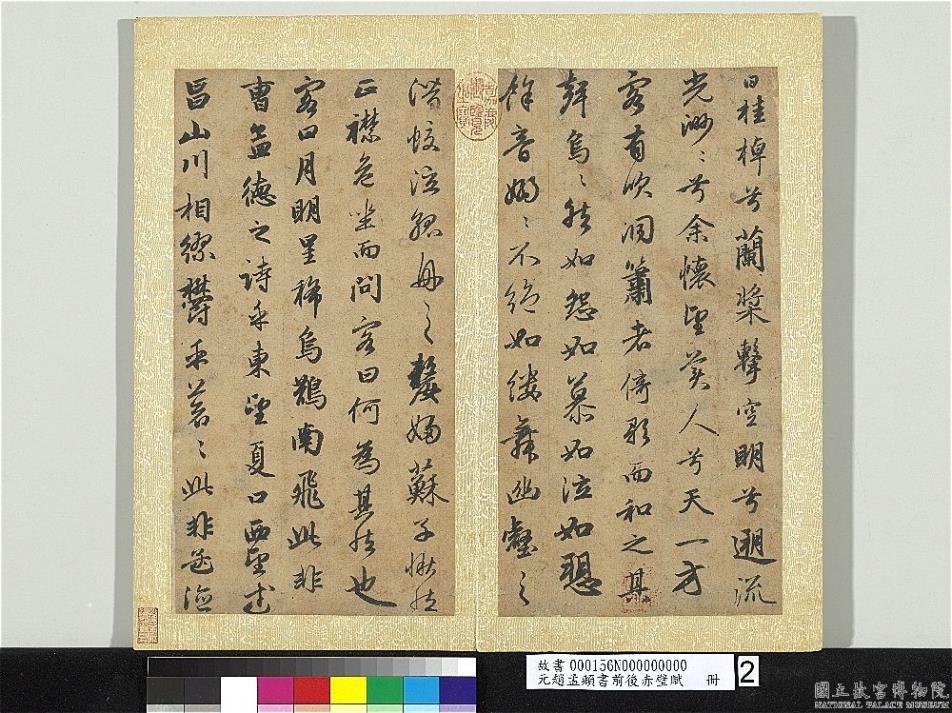 曰桂棹兮蘭槳擊空明兮遡流
光渺〻兮余懷望美人兮天一方
客有吹洞簫者倚歌而和之其
聲烏〻然如怨如慕如泣如愬
餘音嫋〻不絕如縷舞幽壑之
潛蛟泣孤舟之嫠婦蘇子愀然
正襟危坐而問客曰何為其然也
客曰月明星稀烏鵲南飛此非
曹孟德之詩乎東望夏口西望武
昌山川相繆鬱乎蒼〻此非孟德
故書 000156N000000000
元趙孟頫書前後赤壁賦 冊
2
國立故宮博物院
NATIONAL PALACE MUSEUM